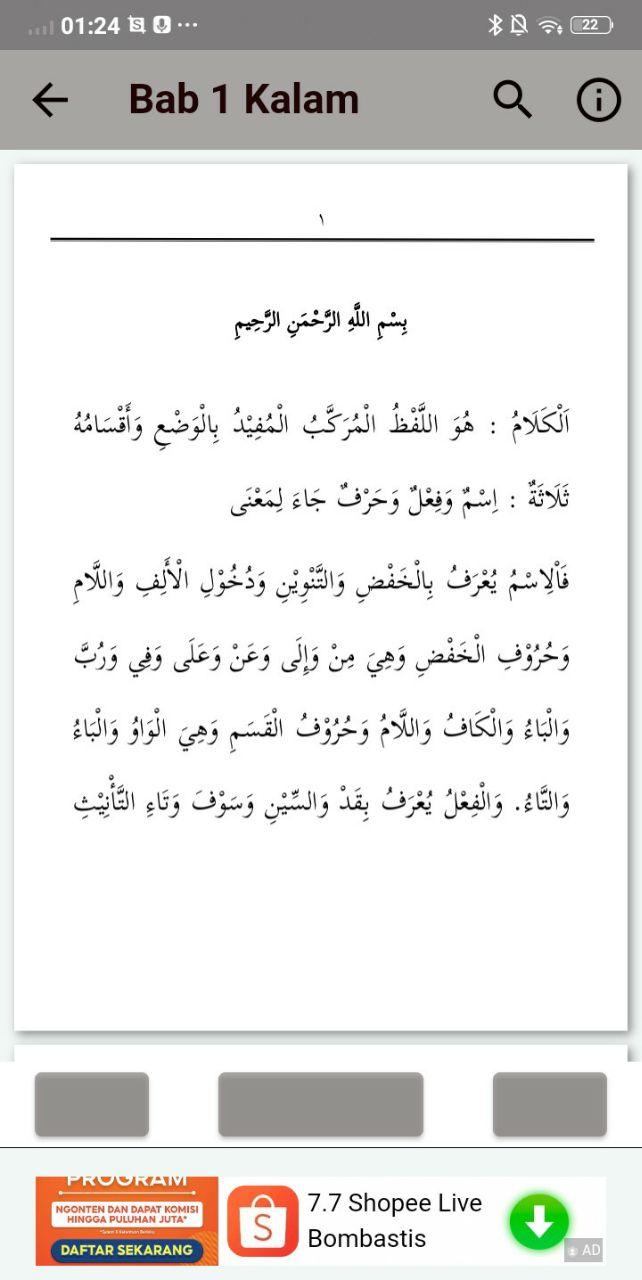 01:24
22
Bab 1 Kalam
١
بِسْمِ اللَّهِ الرَّحْمَنِ الرَّحِيمِ
اَلْكَلَامُ : هُوَ اللَّفْظُ الْمُرَكَّبُ الْمُفِيْدُ بِالْوَضْعِ وَأَقْسَامُهُ
ثَلَاثَةٌ : اِسْمٌ وَفِعْلٌ وَحَرْفٌ جَاءَ لِمَعْنَى
فَاْلِاسْمُ يُعْرَفُ بِالْخَفْضِ وَالتَّنْوِيْنِ وَدُخُوْلِ الْأَلِفِ وَاللَّامِ
وَحُرُوْفِ الْخَفْضِ وَهِيَ مِنْ وَإِلَى وَعَنْ وَعَلَى وَفِي وَرُبَّ
وَالْبَاءُ وَالْكَافُ وَاللَّامُ وَحُرُوْفُ الْقَسَمِ وَهِيَ الْوَاوُ وَالْبَاءُ
وَالتَّاءُ. وَالْفِعْلُ يُعْرَفُ بِقَدْ وَالسِّيْنِ وَسَوْفَ وَتَاءِ التَّأْنِيْثِ
PROGRAM
NGONTEN DAN DAPAT KOMISI
HINGGA PULUHAN JUTA*
DAFTAR SEKARANG
7.7 Shopee Live
Bombastis
AD